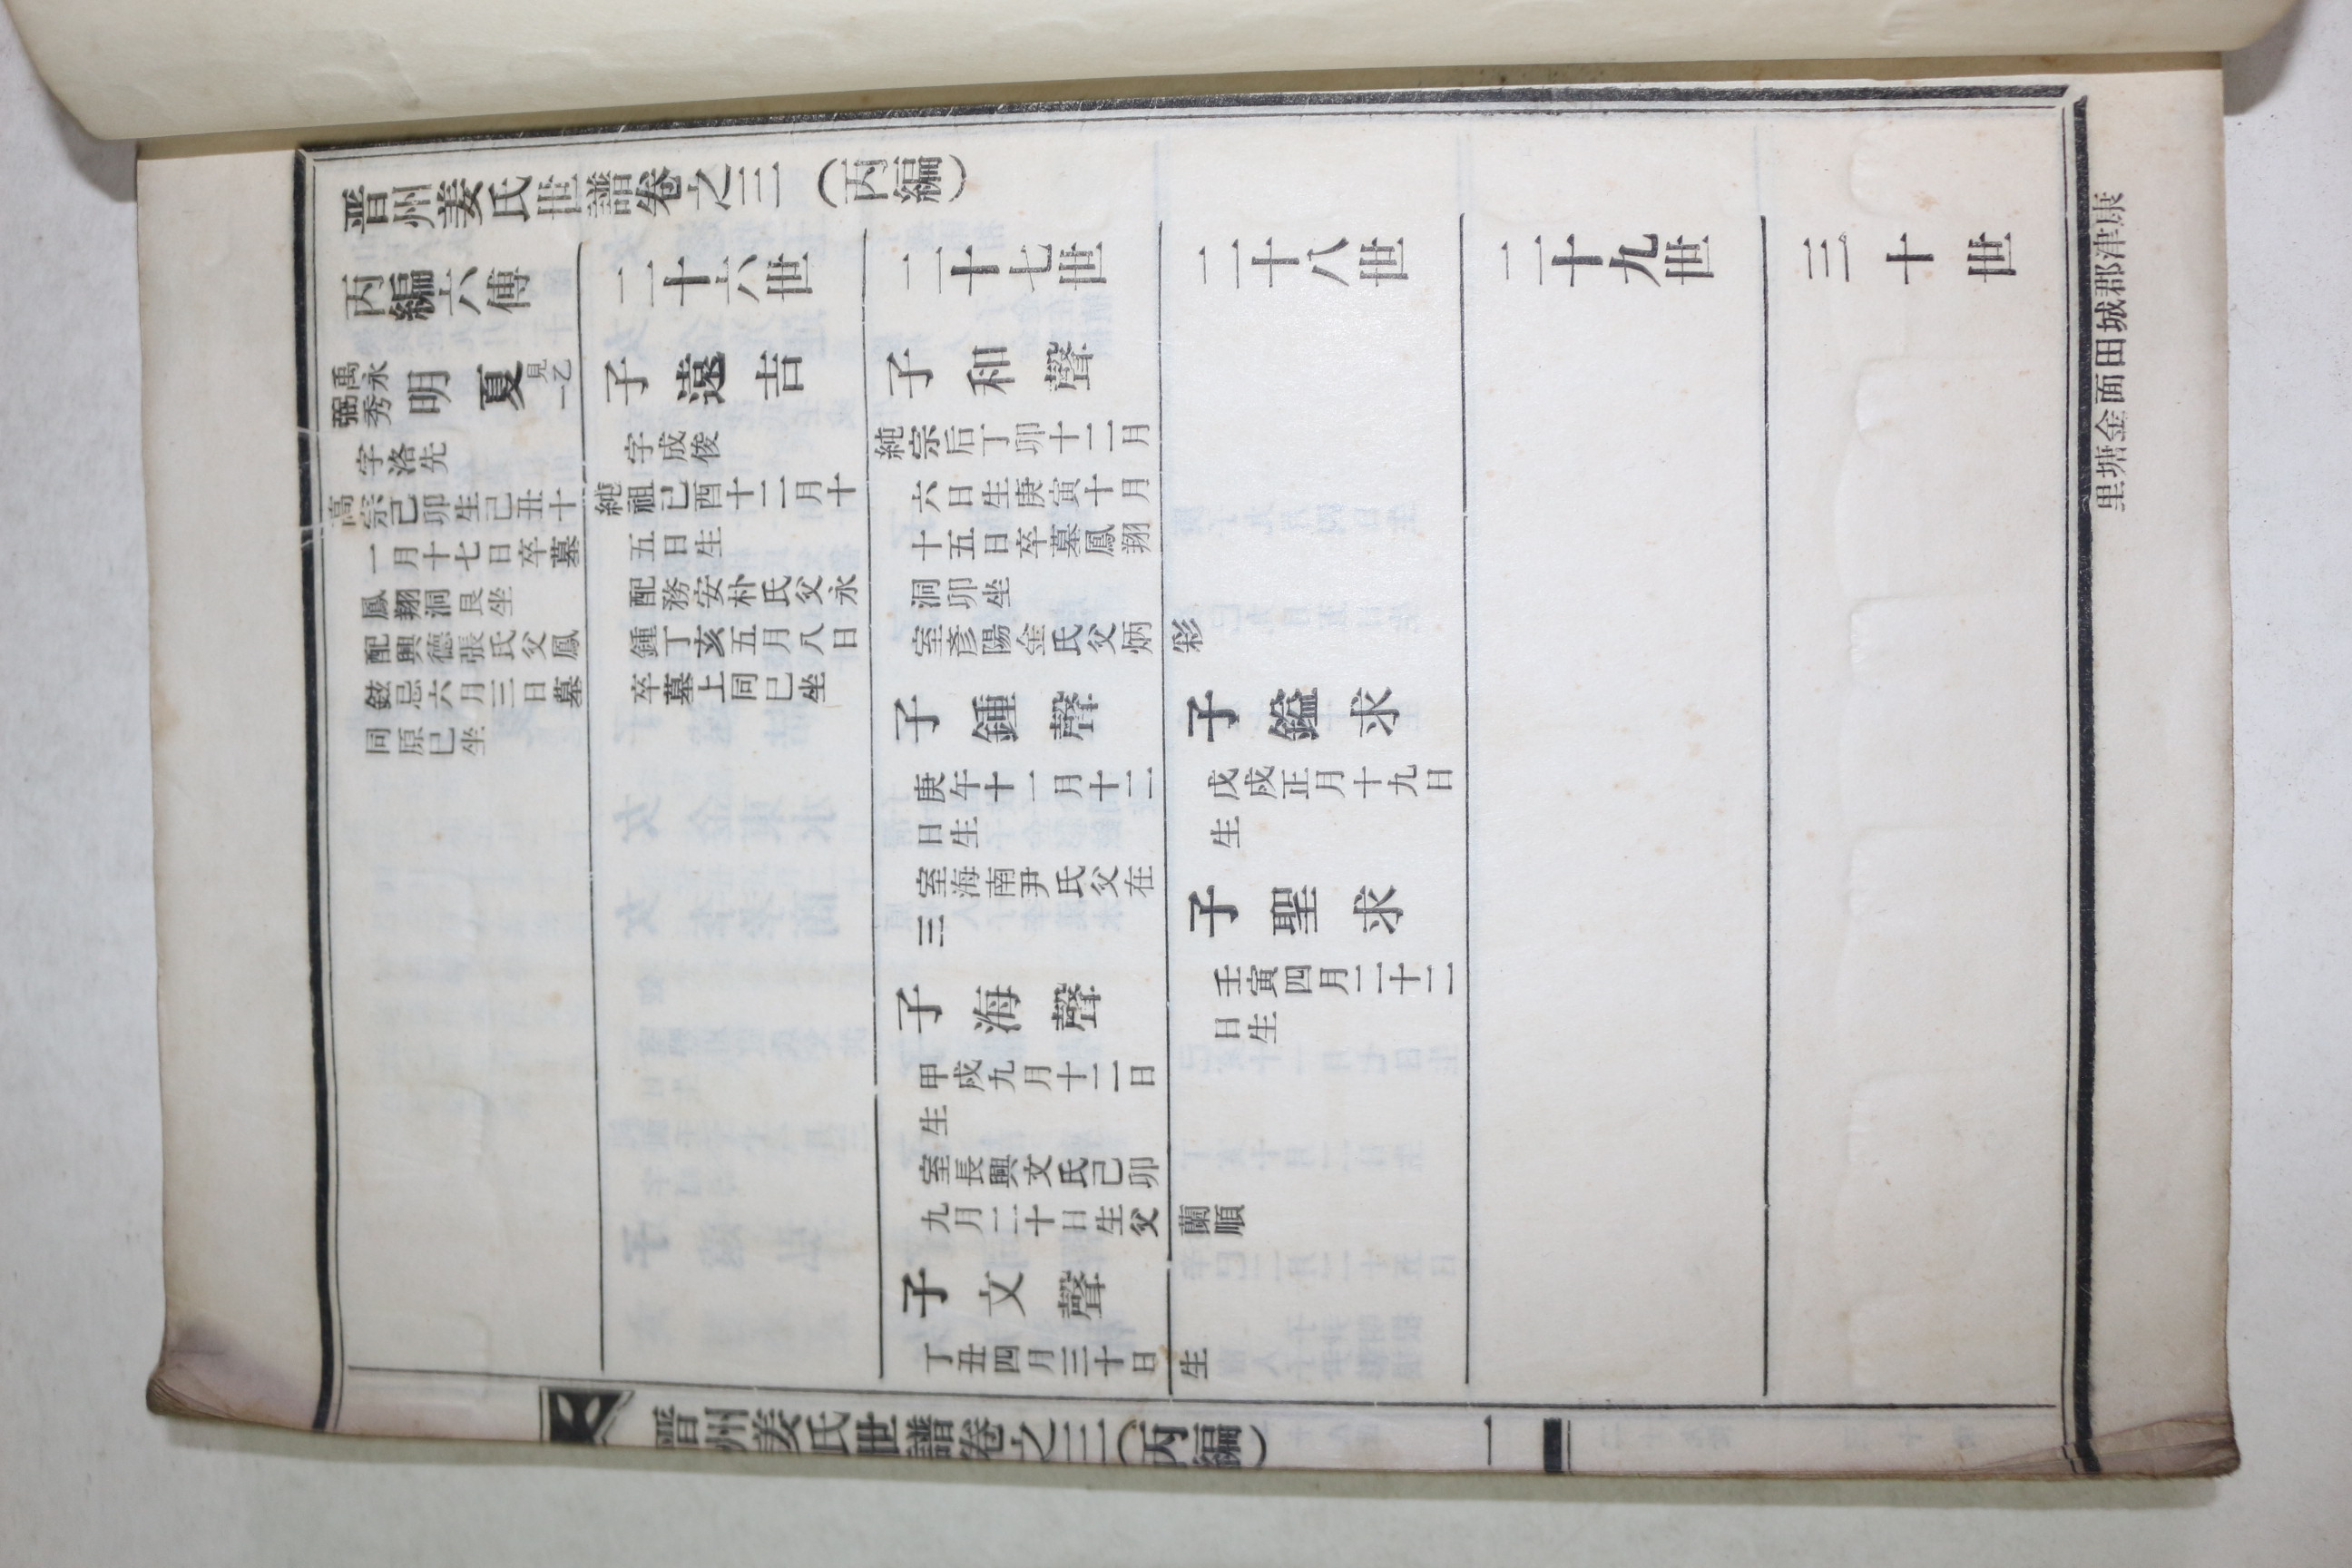 晋州姜氏世譜卷之三（丙編）
丙編六傅
二十六世
二十七世
二十八世
二十九世
三十世
禹永
弼秀
明夏
見乙
一
字洛先
高宗己卯生己丑十
一月十七日卒墓
鳳翔洞艮坐
配興德張氏父鳳
鉉忌六月三日墓
同原巳坐
子遠吉
字成俊
純祖己酉十二月十
五日生
配務安朴氏父永
鍾丁亥五月八日
卒墓上同巳坐
子和聲
純宗后丁卯十二月
六日生庚寅十月
十五日卒墓鳳翔
洞卯坐
室彥陽金氏父炳
彩
子鍾聲
庚午十一月十二
日生
室海南尹氏父在
三
子海聲
甲戍九月十二日
生
室長興文氏己卯
九月二十日生父
蘭順
子文聲
丁丑四月三十日
生
子鎰求
戊戍正月十九日
生
子聖求
壬寅四月二十二
日生
晋州姜氏世譜卷之三（丙編）
一
康津郡城田面金塘里